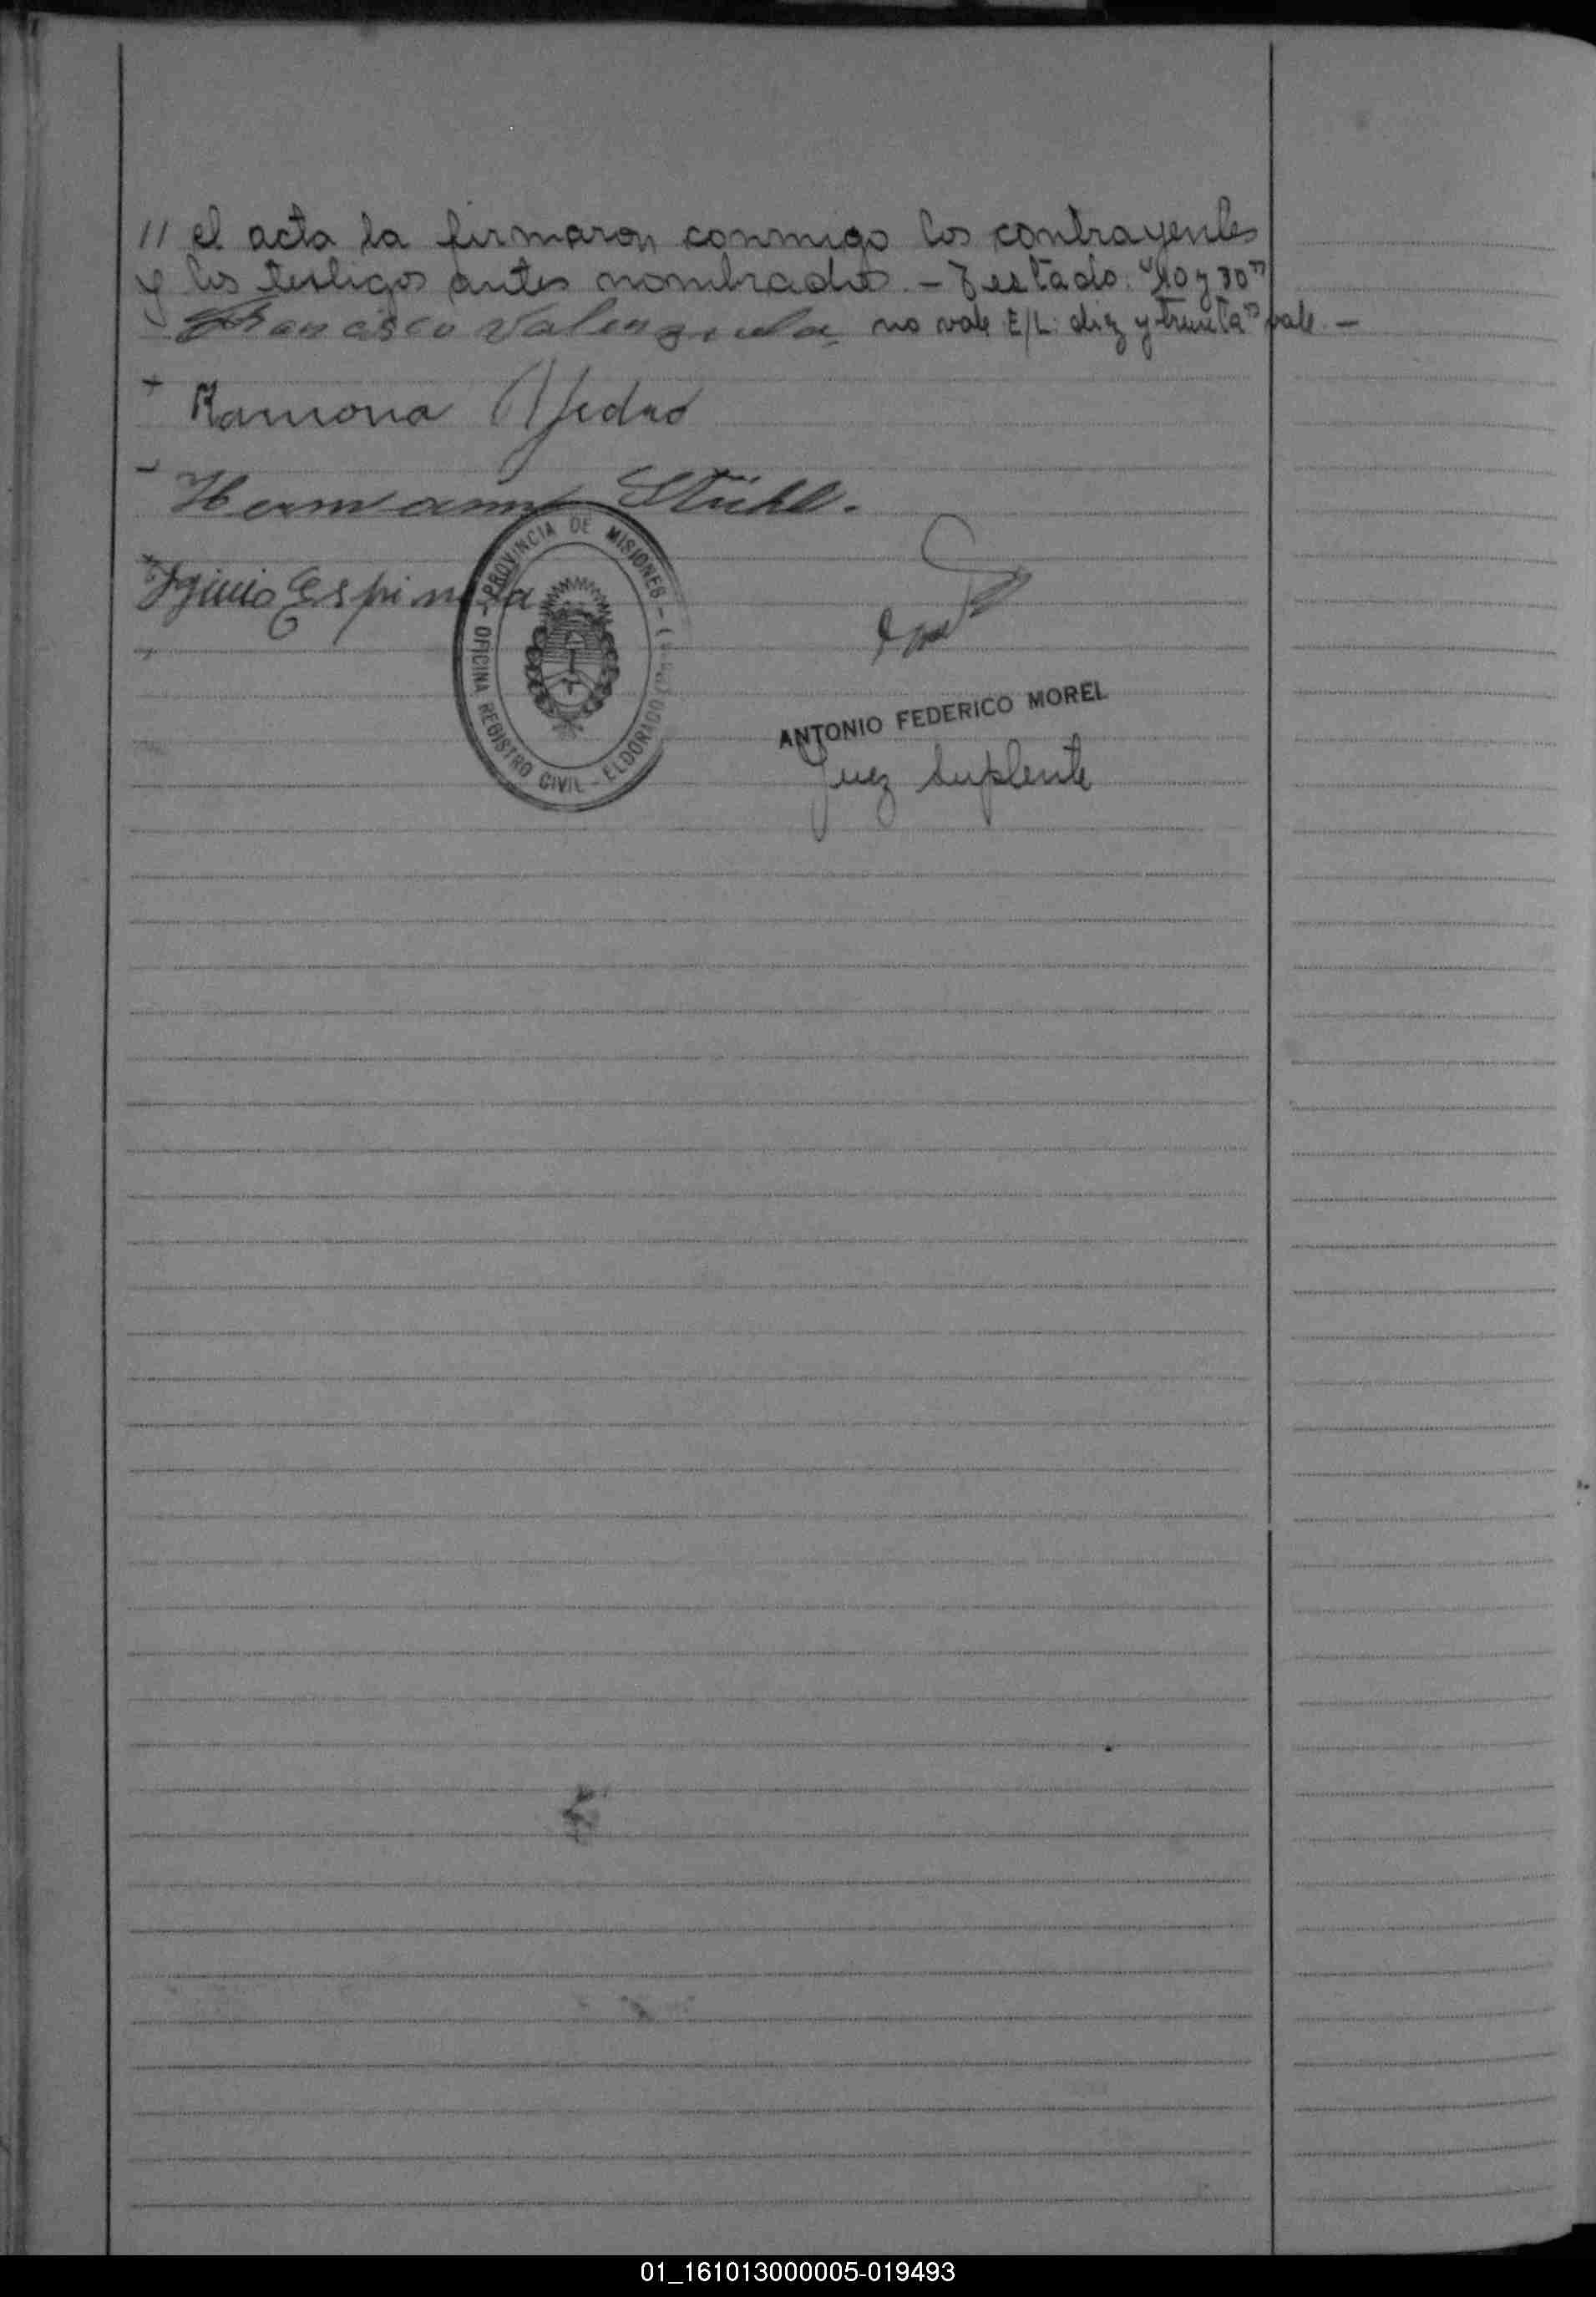 // el acta la firmaron conmigo los contrayentes
y los testigos antes nombrados. - Testado: "10 y 30"
Francisco Valenzuela no vale E/L: diez y treinta" vale. -
Ramona
Hermann Stückl.
Iginio Espinola
PROVINCIA DE MISIONES
OFICINA REGISTRO CIVIL - ELDORADO
ANTONIO FEDERICO MOREL
Juez Suplente
01_161013000005-019493